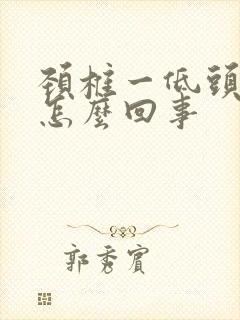 頚椎一低頭
怎麼回事
郭秀賓